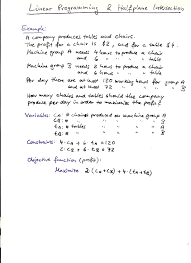 Linear Programming & Halfplane Intersection
Example:
A company produces tables and chairs.
The profit for a chair is $2, and for a table $4.
Machine group A needs 4 hours to produce a chair
and 6 hours " " " table
Machine group B needs 2 hours to produce a chair
and 6 hours " " " table
Per day there are at most 120 working hours for group A
and at most 72 " " " B
How many chairs and tables should the company
produce per day in order to maximize the profit?
Variables: CA: # chairs produced on machine group A
CB: # " " " " B
tA: # tables " " " A
tB: # " " " " B
Constraints: 4·CA + 6·tA ≤ 120
2·CB + 6·tB ≤ 72
Objective function (profit):
Maximize 2(CA+CB) + 4·(tA+tB)